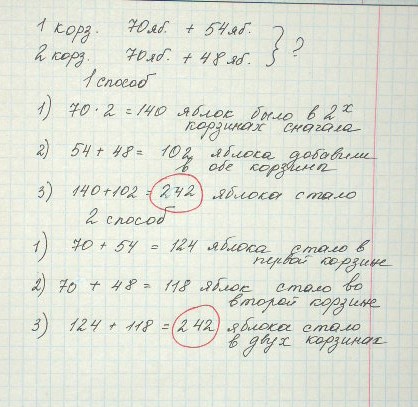 1 корз. 70яб. + 54яб.
2 корз. 70яб. + 48 яб. } ?
1 способ
1) 70·2 = 140 яблок было в 2х
корзинах сначала
2) 54 + 48 = 102 яблока добавили
в обе корзины
3) 140+102 = 242 яблока стало
2 способ
1) 70 + 54 = 124 яблока стало в
первой корзине
2) 70 + 48 = 118 яблок стало во
второй корзине
3) 124 + 118 = 242 яблока стало
в двух корзинах